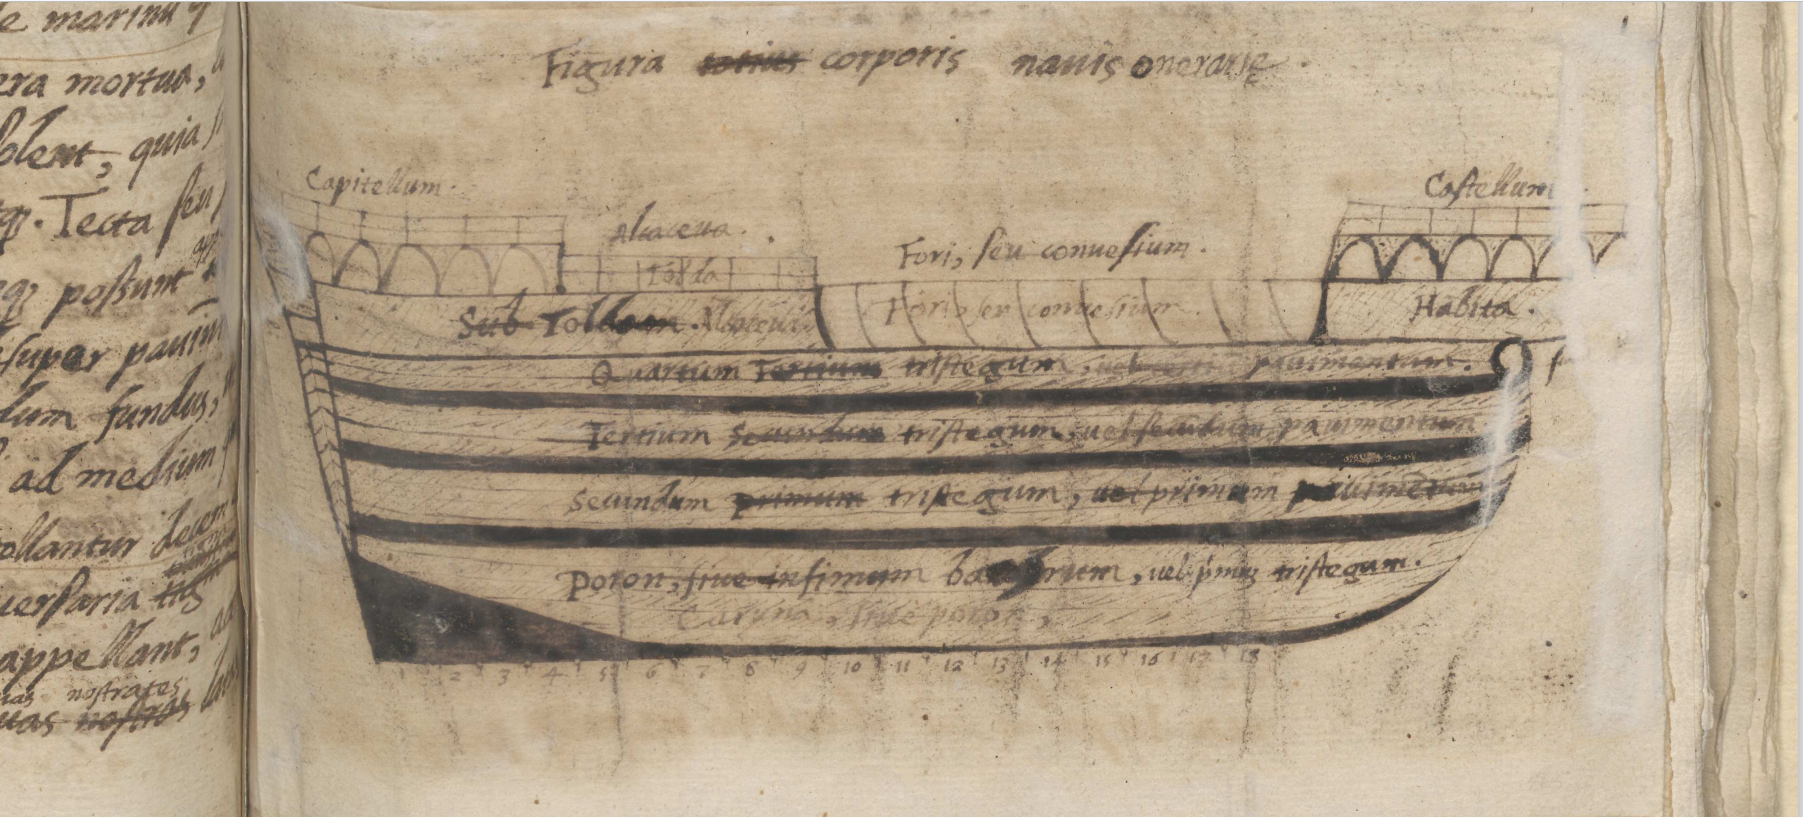 e marinu q
era mortua,
olent, quia
. Tecta seu
possunt
super pauim
dum fundus,
ad medium
tollantur decem
uersaria
appellant,
nostrates
uas nostras
Figura totius corporis nauis onerarię.
Capitellum.
Castellum
Alcaceua.
Tolda
Fori, seu conuesium.
Fori seu conuesium
Sub Toldam.
Habita.
Quartum Tertium tristegum, uel tertium pauimentum.
Tertium Secundum tristegum, uel secundum pauimentum
Secundum primum tristegum, uel primum pauimentum
poron, siue infimum rum, uel primus tristegum.
Caryna, siue poron,
1 2 3 4 5 6 7 8 9 10 11 12 13 14 15 16 17 18